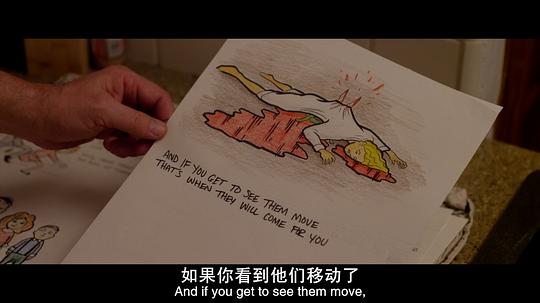 AND IF YOU GET TO SEE THEM MOVE
THAT'S WHEN THEY WILL COME FOR YOU
如果你看到他们移动了
And if you get to see them move,